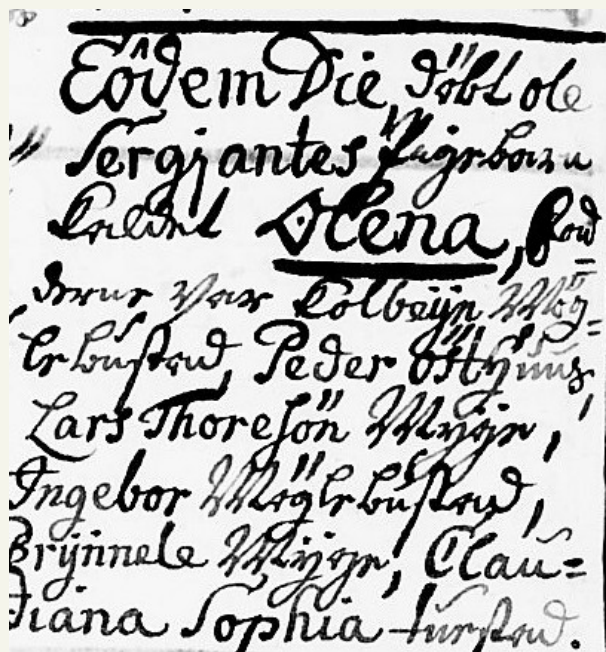 Eôdem Die, döbt ole
Sergjantes Pigebarn
kaldet Olena, fad=
derne var Kolbeijn Mög=
lebustad, Peder
Lars Thoresön Myge,
Ingebor Möglebustad,
Brÿnnele Myge, Clau=
diana Sophia